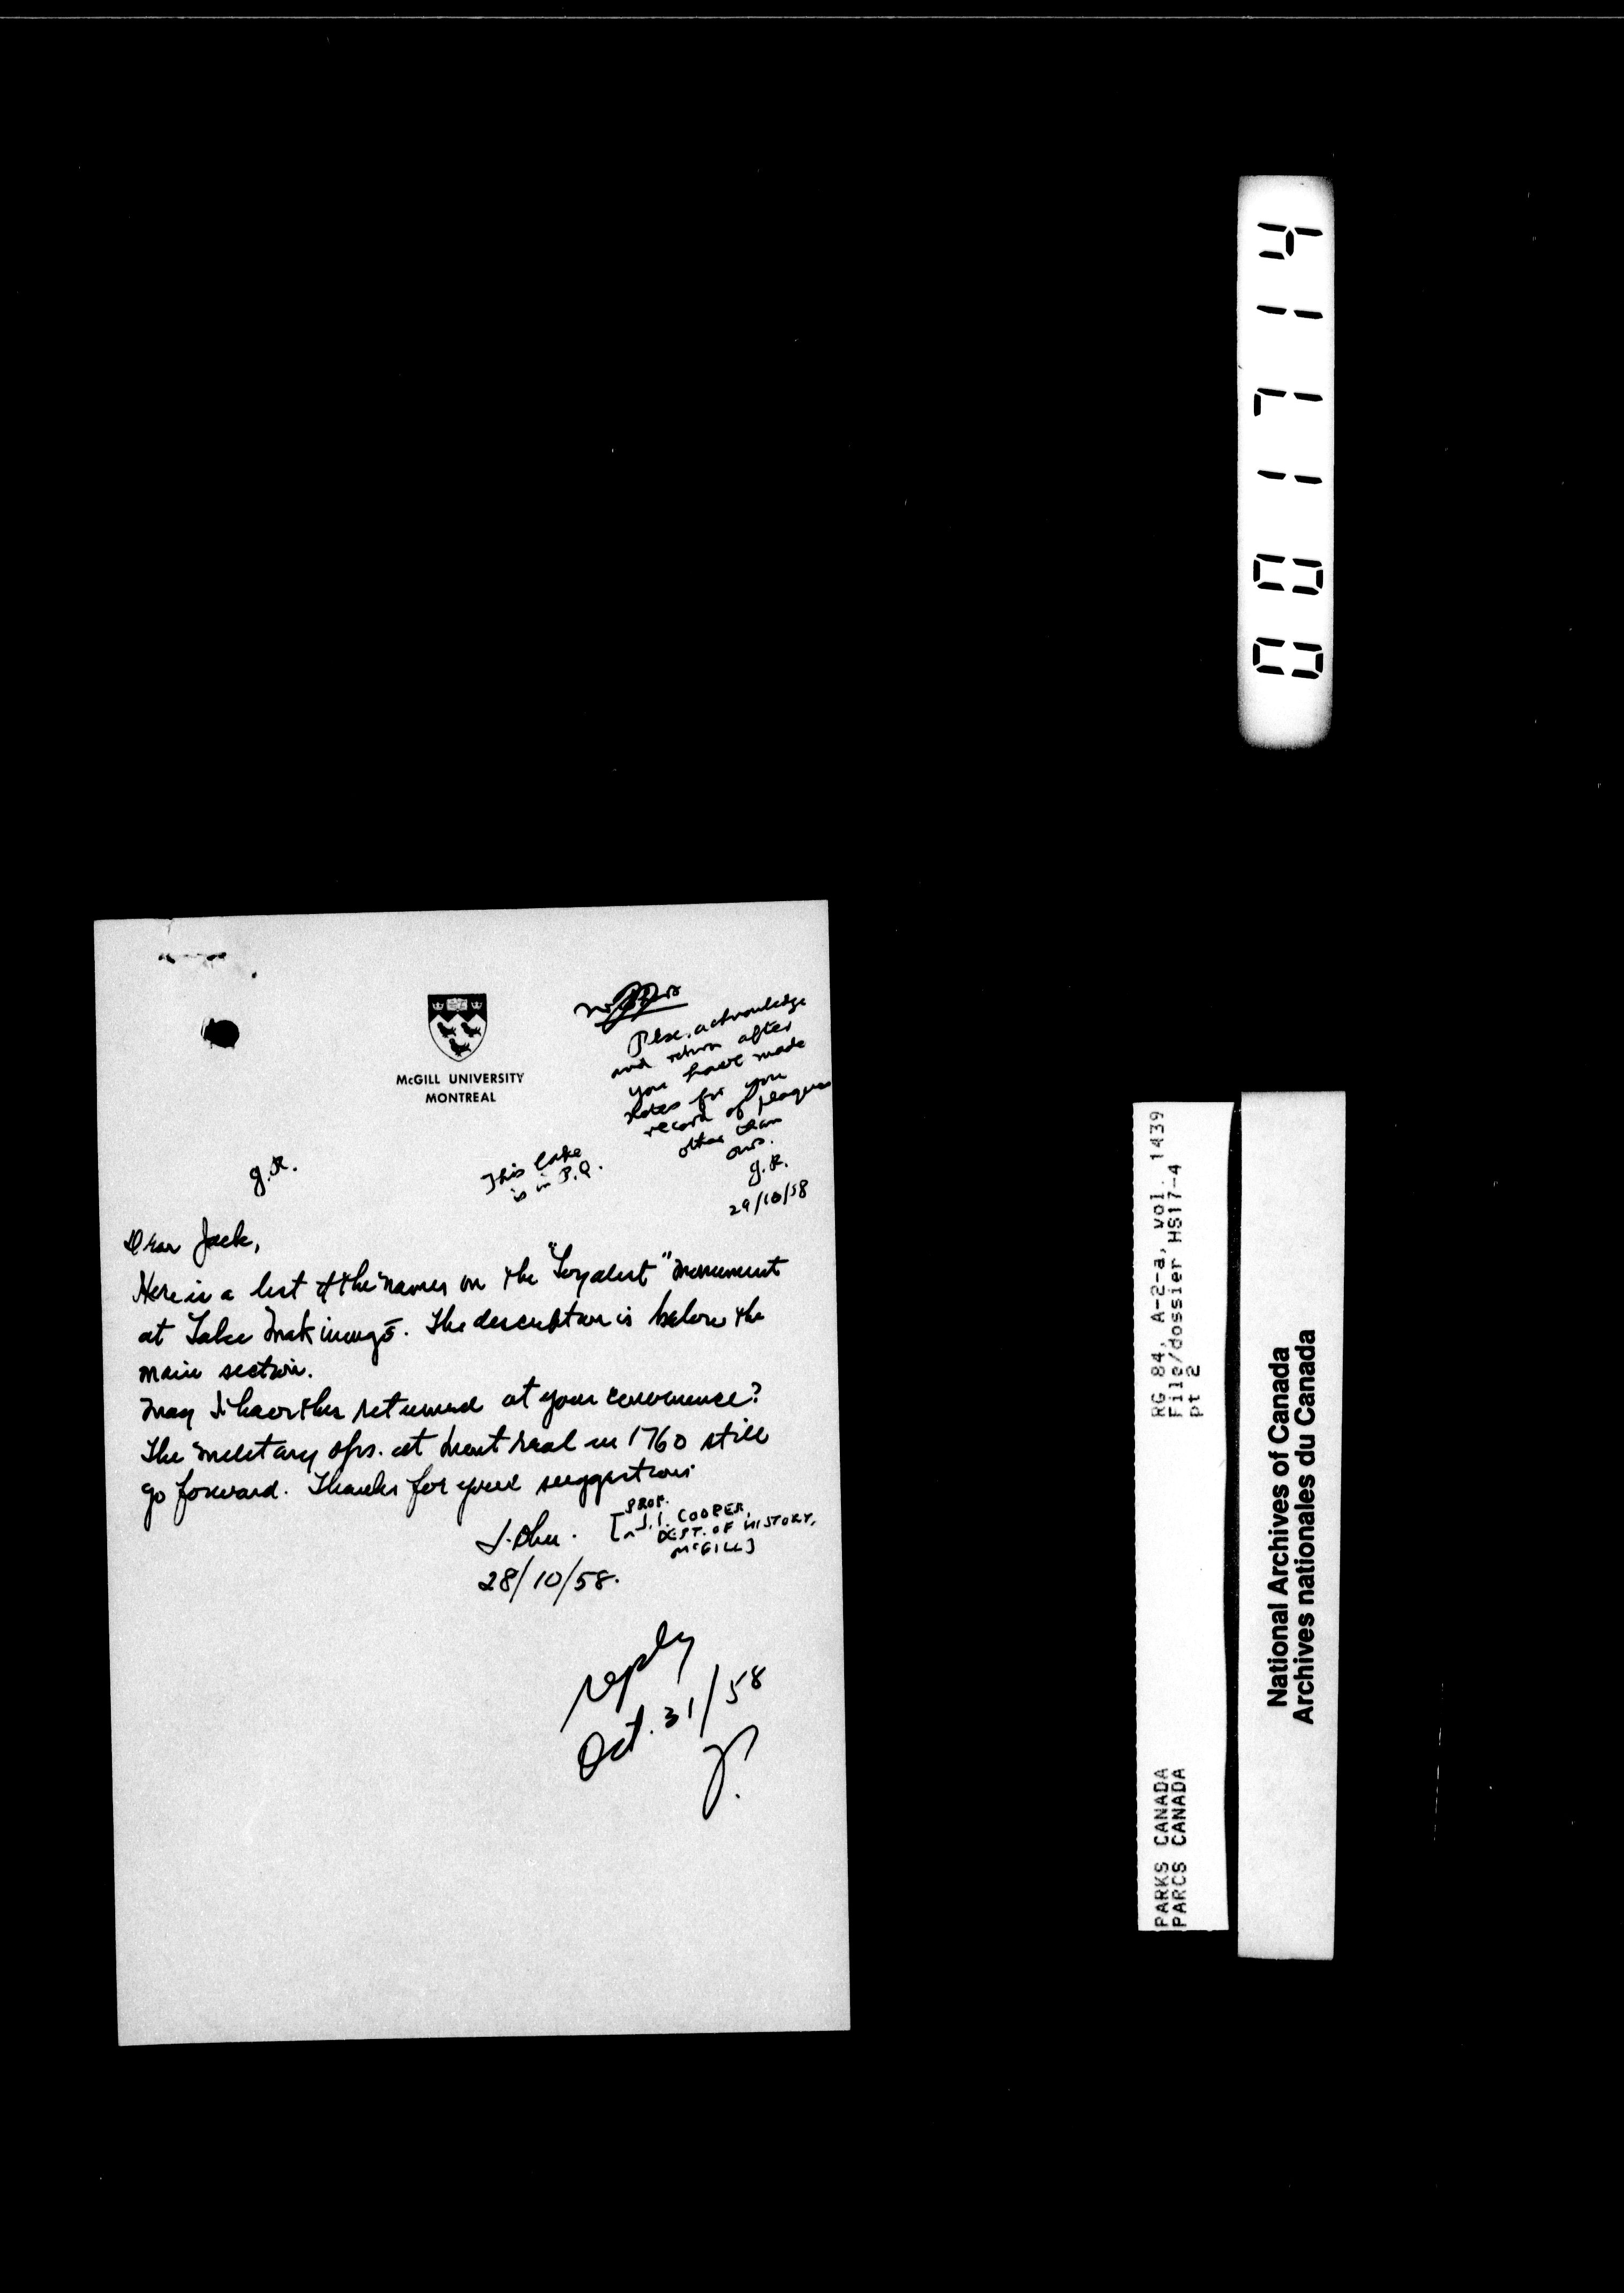 McGILL UNIVERSITY
MONTREAL
Plse. acknowledge
and return after
you have made
notes for you
record of plaques
other than
ours.
J.R.
29/10/58
J.R.
This lake
is in P.Q.
Dear Jack,
Here is a list of the names on the "Loyalist" monument
at Lake. The description is below the
main section.
May I have this returned at your convenience?
The military ops. at Montreal in 1760 still
go forward. Thanks for your suggestions
John.
[PROF.
J.I. COOPER,
DEPT. OF HISTORY,
McGILL]
28/10/58.
reply
Oct. 31/58
001714
RG 84, A-2-a, vol. 1439
File/dossier HS17-4
pt 2
PARKS CANADA
PARCS CANADA
National Archives of Canada
Archives nationales du Canada